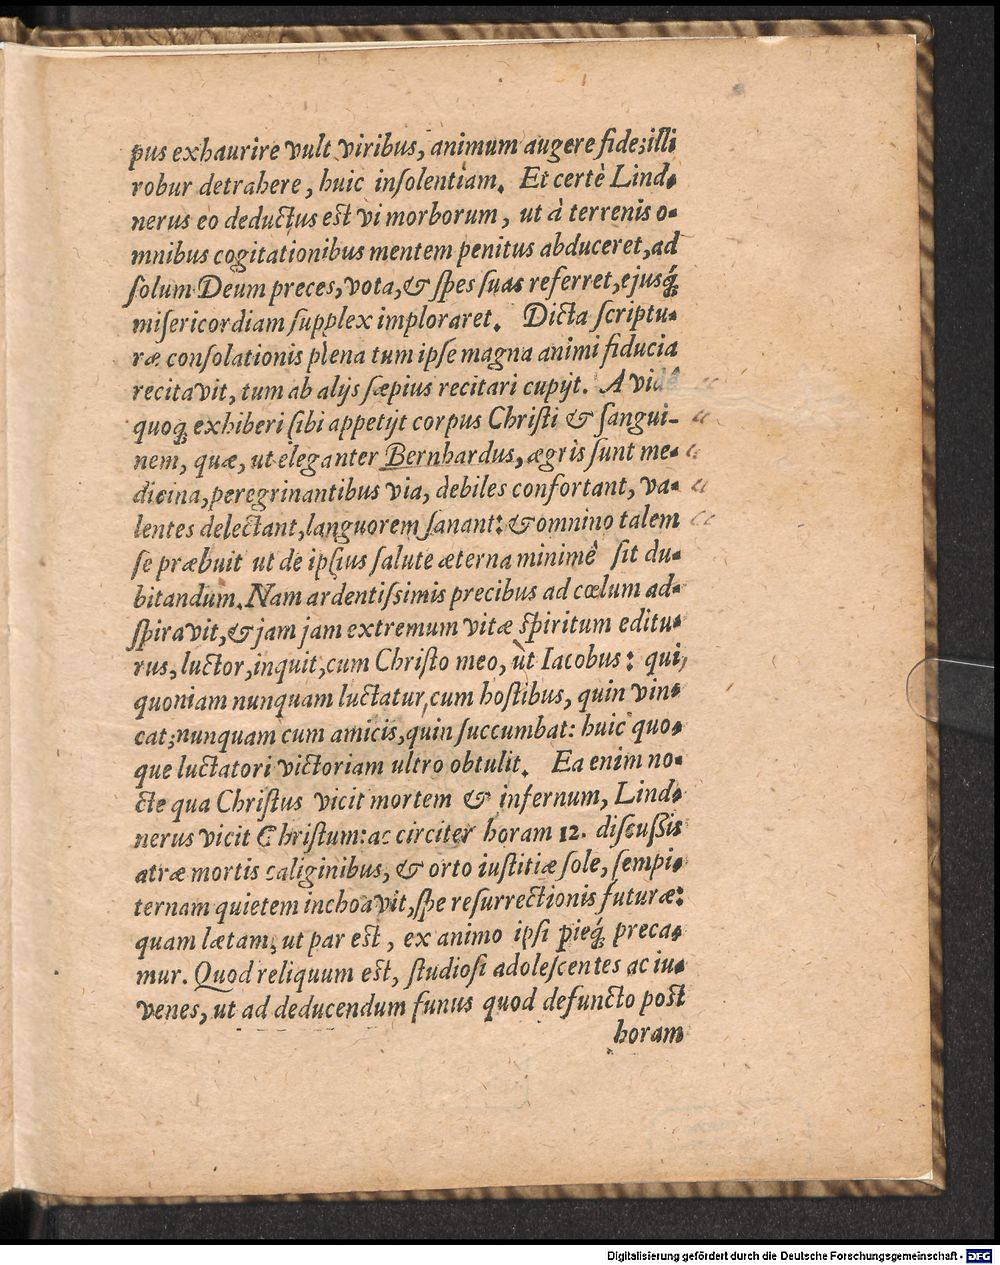 pus exhaurire vult viribus, animum augere fide; illi
robur detrahere, huic inſolentiam. Et certè Lind-
nerus eo deductus eſt vi morborum, ut à terrenis o-
mnibus cogitationibus mentem penitus abduceret, ad
ſolum Deum preces, vota, & ſpes ſuas referret, ejusq́;
miſericordiam ſupplex imploraret. Dicta ſcriptu-
ræ conſolationis plena tum ipſe magna animi fiducia
recitavit, tum ab alijs ſæpius recitari cupijt. Avidè
quoq; exhiberi ſibi appetijt corpus Chriſti & ſangui-
nem, quæ, ut eleganter Bernhardus, ægris ſunt me-
dicina, peregrinantibus via, debiles confortant, va-
lentes delectant, languorem ſanant: & omnino talem
ſe præbuit ut de ipſius ſalute æterna minimè ſit du-
bitandum. Nam ardentiſsimis precibus ad cœlum ad-
ſpiravit, & jam jam extremum vitæ ſpiritum editu-
rus, luctor, inquit, cum Chriſto meo, ut Iacobus: qui,
quoniam nunquam luctatur cum hoſtibus, quin vin-
cat; nunquam cum amicis, quin ſuccumbat: huic quo-
que luctatori victoriam ultro obtulit. Ea enim no-
cte qua Chriſtus vicit mortem & infernum, Lind-
nerus vicit Chriſtum: ac circiter horam 12. diſcußis
atræ mortis caliginibus, & orto iuſtitiæ ſole, ſempi-
ternam quietem inchoavit, ſpe reſurrectionis futuræ:
quam lætam, ut par eſt, ex animo ipſi pieq́; preca-
mur. Quod reliquum eſt, ſtudioſi adoleſcentes ac iu-
venes, ut ad deducendum funus quod defuncto poſt
horam
Digitalisierung gefördert durch die Deutsche Forschungsgemeinschaft - DFG